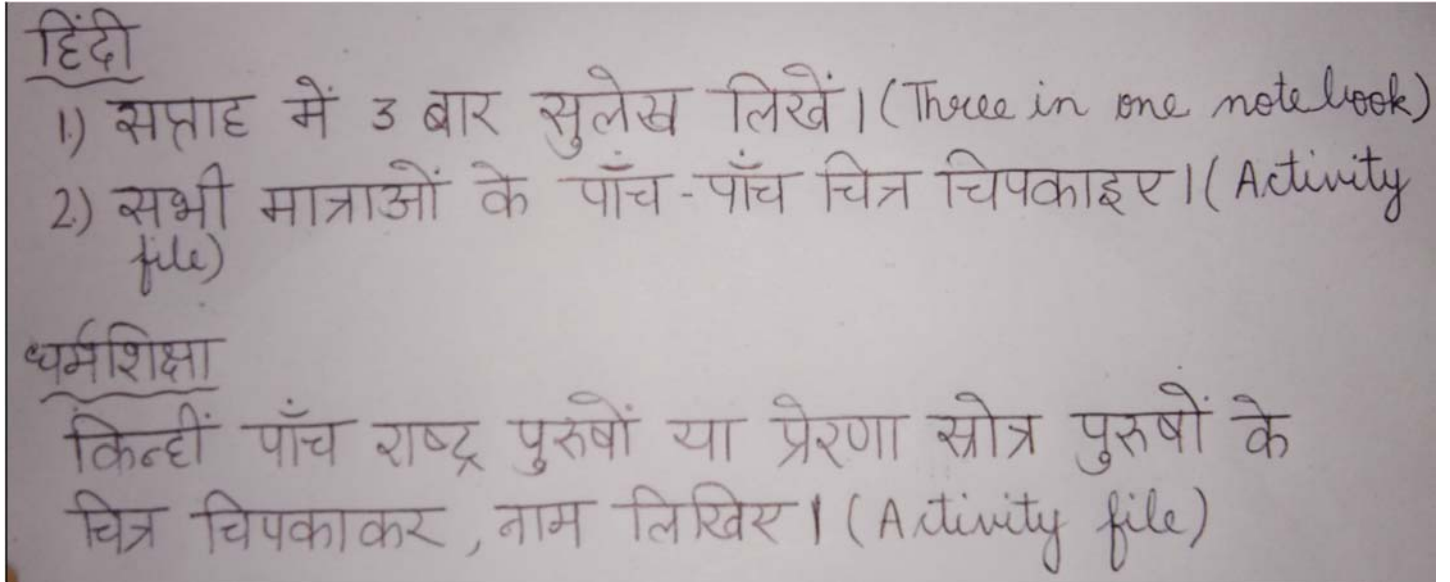 हिंदी
1.) सप्ताह में 3 बार सुलेख लिखें। (Three in one notebook)
2.) सभी मात्राओं के पाँच-पाँच चित्र चिपकाइए। (Activity
file)
धर्मशिक्षा
किन्हीं पाँच राष्ट्र पुरुषों या प्रेरणा स्रोत्र पुरुषों के
चित्र चिपकाकर, नाम लिखिए। (Activity file)